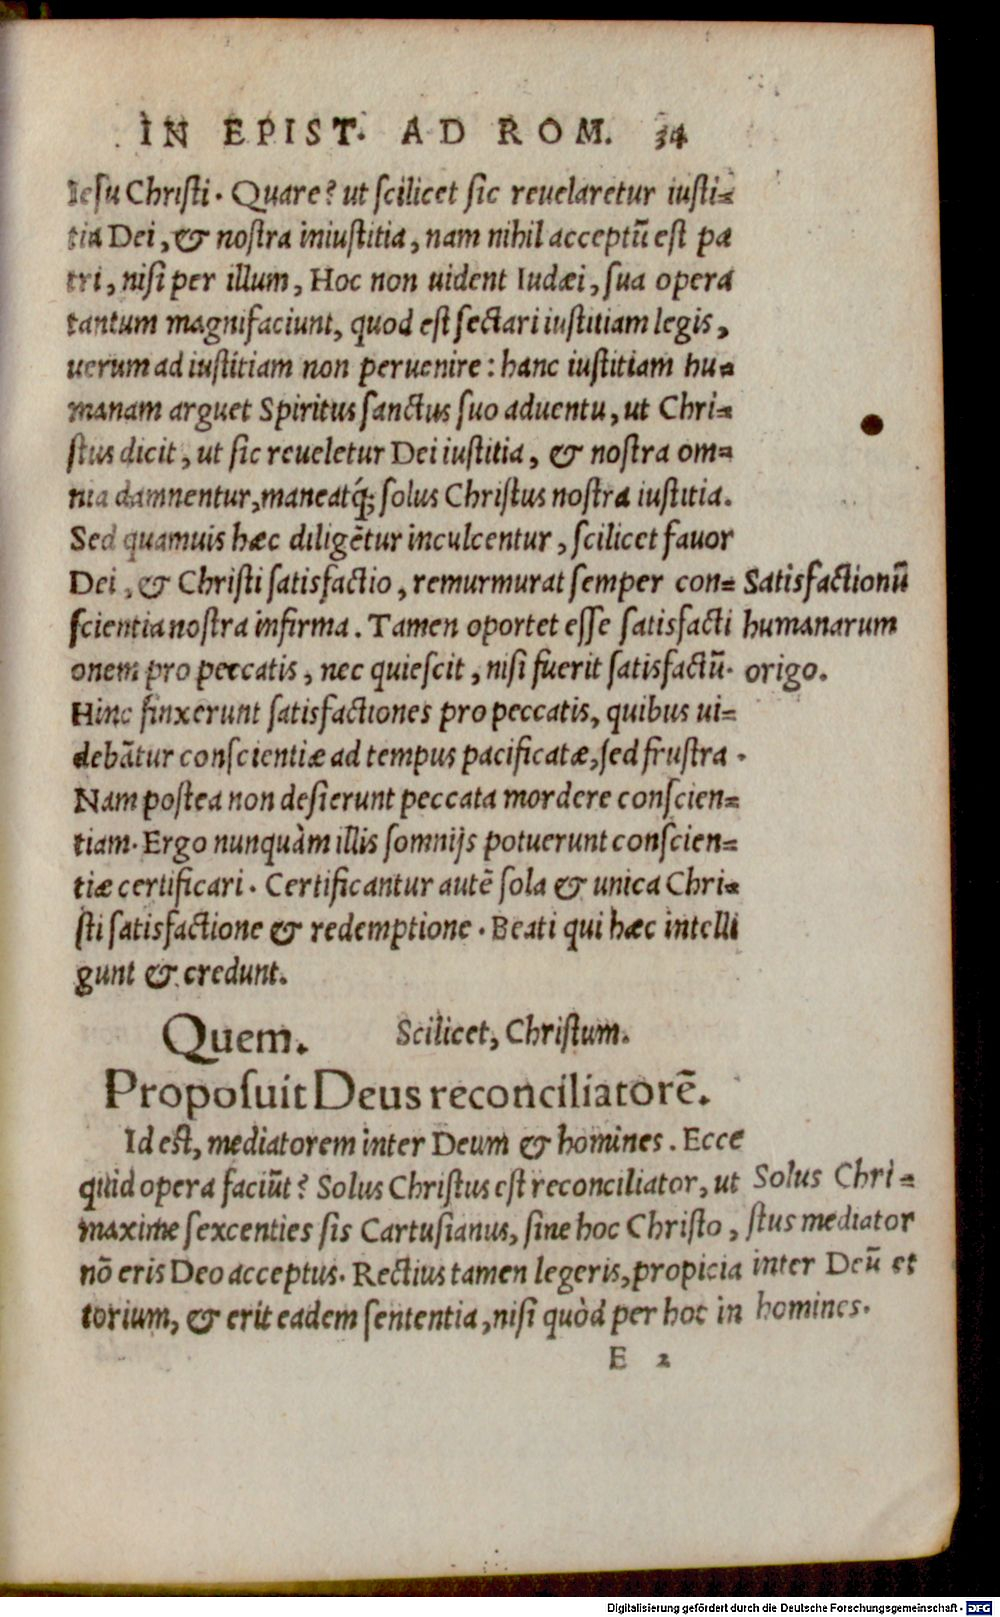 IN EPIST. AD ROM. 34
Iesu Christi. Quare? ut scilicet sic reuelaretur iusti=
tia Dei, & nostra iniustitia, nam nihil acceptũ est pa
tri, nisi per illum, Hoc non uident Iudæi, sua opera
tantum magnifaciunt, quod est sectari iustitiam legis,
uerum ad iustitiam non peruenire: hanc iustitiam hu=
manam arguet Spiritus sanctus suo aduentu, ut Chri=
stus dicit, ut sic reueletur Dei iustitia, & nostra om=
nia damnentur, maneatq́; solus Christus nostra iustitia.
Sed quamuis hæc diligẽtur inculcentur, scilicet fauor
Dei, & Christi satisfactio, remurmurat semper con=
scientia nostra infirma. Tamen oportet esse satisfacti
onem pro peccatis, nec quiescit, nisi fuerit satisfactũ.
Hinc finxerunt satisfactiones pro peccatis, quibus ui=
debãtur conscientiæ ad tempus pacificatæ, sed frustra.
Nam postea non desierunt peccata mordere conscien=
tiam. Ergo nunquàm illis somnijs potuerunt conscien=
tiæ certificari. Certificantur autẽ sola & unica Chri=
sti satisfactione & redemptione. Beati qui hæc intelli
gunt & credunt.
Satisfactionũ
humanarum
origo.
Quem. Scilicet, Christum.
Proposuit Deus reconciliatorẽ.
Id est, mediatorem inter Deum & homines. Ecce
quid opera faciũt? Solus Christus est reconciliator, ut
maxime sexcenties sis Cartusianus, sine hoc Christo,
nõ eris Deo acceptus. Rectius tamen legeris, propicia
torium, & erit eadem sententia, nisi quòd per hoc in
Solus Chri=
stus mediator
inter Deũ et
homines.
E 2
Digitalisierung gefördert durch die Deutsche Forschungsgemeinschaft - DFG